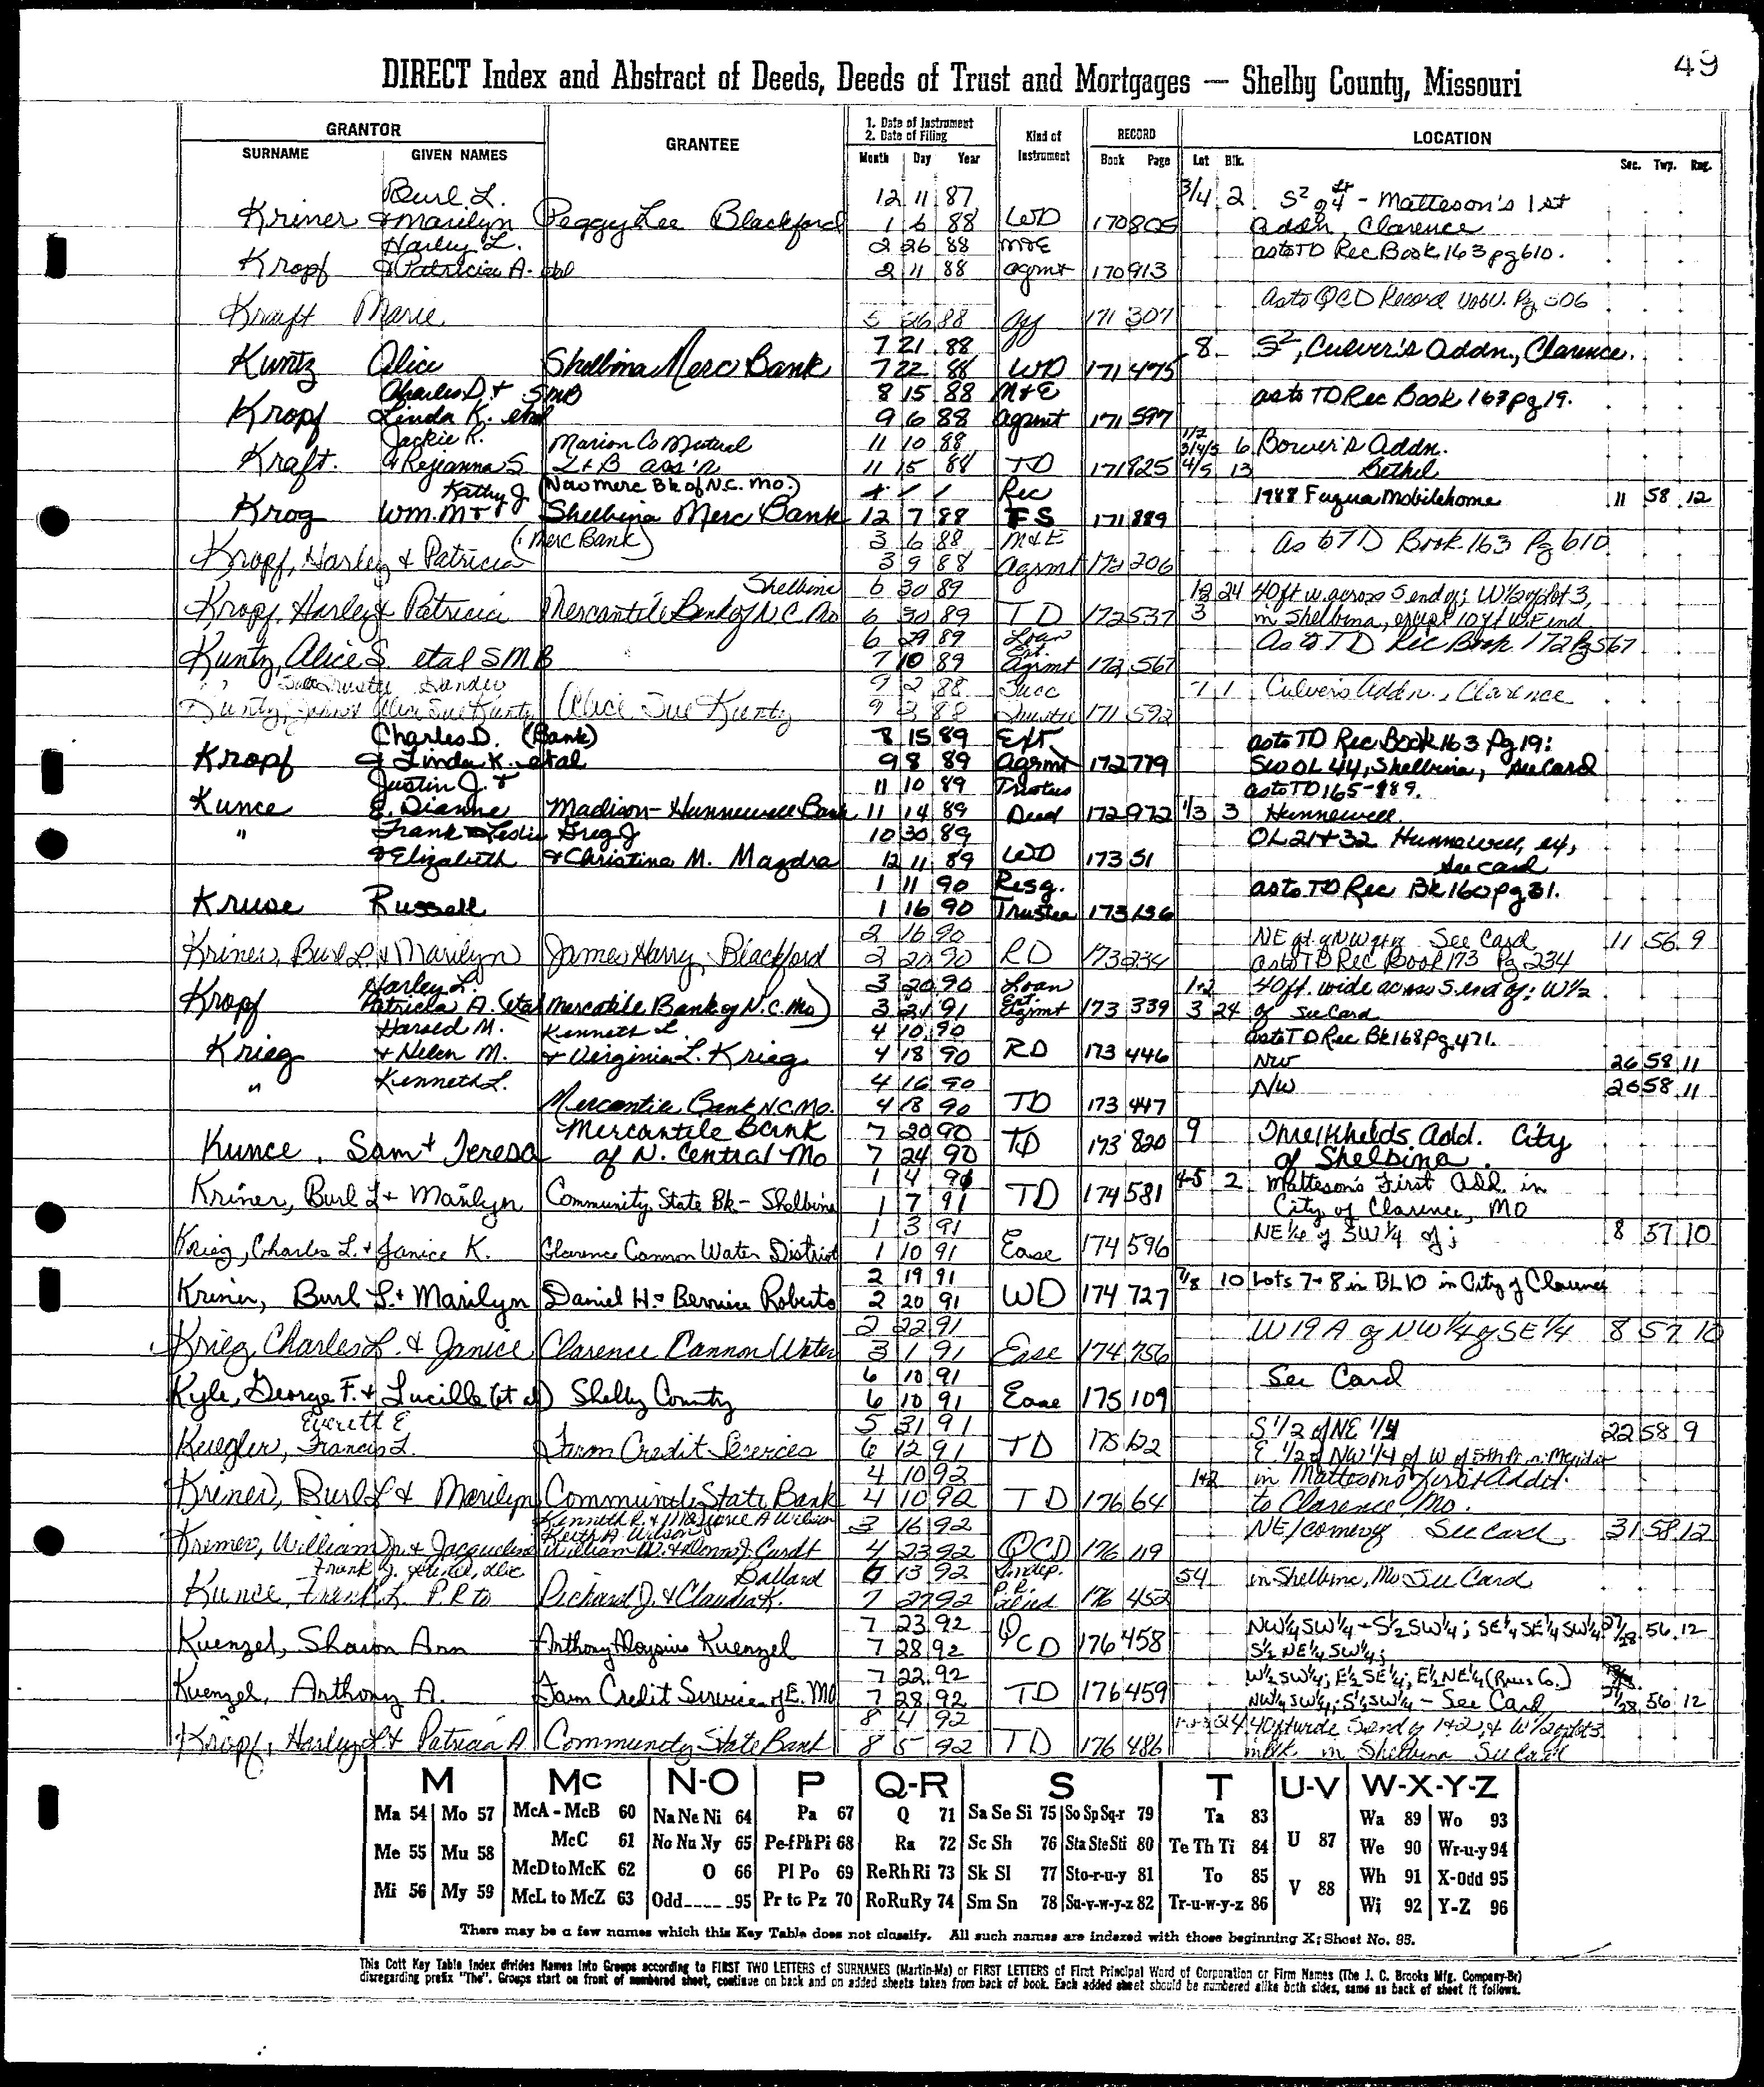 49
DIRECT Index and Abstract of Deeds, Deeds of Trust and Mortgages — Shelby County, Missouri
GRANTOR
SURNAME GIVEN NAMES
GRANTEE
1. Date of Instrument
2. Date of Filing
Month Day Year
Kind of Instrument
RECORD
Book Page
LOCATION
Lot Blk. Sec. Twp. Rng.
Burl L. 12 11 87 3/4 2 - Matteson's 1st
Kriner & Marilyn Peggy Lee Blackford 1 6 88 WD 170 805 Addn, Clarence
Harley L. 2 26 88 M&E as to TD Rec Book 163 pg 610.
Kropf & Patricia A. etal 2 11 88 agrmt 170 913
as to QCD Record
Kraft Marie 5 26 88 aff 171 307
7 21 88 8 S2, Culver's Addn., Clarence.
Kuntz Alice Shelbina Merc Bank 7 22 88 WD 171 475
Charles D. & SMB 8 15 88 M&E as to TD Rec Book 163 pg 19.
Kropf Linda K. etal 9 6 88 agrmt 171 597
Jackie R. Marion Co Mutual 11 10 88 1/2 3/4/5 6 Bower's Addn.
Kraft. & Rejeanna S L+B ass'n 11 15 88 TD 171 825 4/5 13 Bethel
Kathy J. (Now merc Bk of N.C. Mo.) Rec 1988 Fuqua Mobilehome 11 58 12
Krog Wm. M & Shelbina Merc Bank 12 7 88 FS 171 889
(Merc Bank) 3 6 88 M&E as to TD Book 163 Pg 610
Kropf, Harley & Patricia 3 9 88 agrmt 172 206
Shelbina 6 30 89 1-2 24 40 ft w. across S end of; W½ of lot 3,
Kropf, Harley & Patricia Mercantile Bank of N.C. Mo 6 30 89 TD 172 537 3 in Shelbina, except 10 ft W End
6 29 89 Loan As to TD Rec Book 172 Pg 567
Kuntz, Alice S. etal SMB 7 10 89 Ext. Agrmt 172 567
9 2 88 Succ 7 1 Culvers Addn., Clarence
Kuntz, John & Alice Sue Kuntz Alice Sue Kuntz 9 2 88 Trustee 171 592
Charles D. (Bank) 8 15 89 Ext as to TD Rec Book 163 Pg 19:
Kropf & Linda K. etal 9 8 89 agrmt 172 779 SW OL 44, Shelbina, See Card
Justin J. & 11 10 89 Trustees as to TD 165-889.
Kunce E. Dianne Madison-Hunnewell Bank 11 14 89 Deed 172 972 1/3 3 Hunnewell.
" Frank & Leslie Greg J 10 30 89 OL 21+32 Hunnewell, ex,
& Elizabeth & Christina M. Mazdra 12 11 89 WD 173 51 See card
1 11 90 Resg. as to TD Rec Bk 160 pg 31.
Kruse Russell 1 16 90 Trustee 173 136
2 16 90 NE qt of NW qt of See Card 11 56 9
Kriner, Burl L & Marilyn James Harry Blackford 2 20 90 RD 173 234 as to TD Rec Book 173 Pg 234
Harley L. 3 20 90 Loan 1+2 40 ft. wide across S. end of: W½
Kropf Patricia A. (etal Mercantile Bank of N.C. Mo) 3 21 91 Ext. Agrmt 173 339 3 24 of See Card
Harold M. Kenneth L. 4 10 90 as to TD Rec Bk 168 pg. 471.
Krieg & Helen M. & Virginia L. Krieg 4 18 90 RD 173 446 NW 26 58 11
" Kenneth L. 4 16 90 NW 26 58 11
Mercantile Bank N.C. Mo. 4 18 90 TD 173 447
Mercantile Bank 7 20 90 9 Threlkhelds Add. City
Kunce, Sam & Teresa of N. Central Mo 7 24 90 TD 173 820 of Shelbina.
1 4 91 4-5 2 Matteson's First Add. in
Kriner, Burl L & Marilyn Community State Bk - Shelbina 1 7 91 TD 174 581 City of Clarence, MO
1 3 91 NE¼ of SW¼ of; 8 57 10
Krieg, Charles L. & Janice K. Clarence Cannon Water District 1 10 91 Ease 174 596
2 19 91 7/8 10 Lots 7+8 in BL 10 in City of Clarence
Kriner, Burl L. & Marilyn Daniel H. & Bernice Roberts 2 20 91 WD 174 727
2 22 91 W 19 A of NW¼ of SE¼ 8 57 10
Krieg Charles L. & Janice Clarence Cannon Water 3 1 91 Ease 174 756
6 10 91 See Card
Kyle, George F. & Lucille (et al) Shelby County 6 10 91 Ease 175 109
Everett E 5 31 91 S 1/2 of NE 1/4 22 58 9
Kuegler, Francis L. Farm Credit Services 6 12 91 TD 175 122 E. 1/2 of NW 1/4 of W of 5th
4 10 92 1+2 in Matteson's first Addit.
Kriner, Burl L & Marilyn Community State Bank 4 10 92 TD 176 64 to Clarence, Mo.
Kenneth R. & Marjorie A Wilson 3 16 92 NE/corner of See Card 31 58 12
Keith A. Wilson
Kremer, William Jr. & Jacqueline William W. & Donna J. Gurdt 4 23 92 QCD 176 119
Ballard 6 13 92 Indep. 54 in Shelbina, Mo See Card
Kunce, Frank L. P.R to Richard J. & Claudia K. 7 27 92 P.R. Deed 176 452
7 23 92 NW¼ SW¼ - S½ SW¼; SE¼ SE¼ SW¼ 27/28 56 12
Kuenzel, Sharon Ann Anthony Aloysius Kuenzel 7 28 92 QCD 176 458 S½ NE¼ SW¼;
7 22 92 W½ SW¼; E½ SE¼; E½ NE¼
Kuenzel, Anthony A. Farm Credit Service of E. Mo 7 28 92 TD 176 459 NW¼ SW¼; S½ SW¼ - See Card 27/28 56 12
8 4 92 40 ft wide S end of 1+2, & W½ of lot 3
Kropf, Harley L & Patricia A. Community State Bank 8 5 92 TD 176 486 in Blk in Shelbina See Card
M Mc N-O P Q-R S T U-V W-X-Y-Z
Ma 54 Mo 57 McA - McB 60 Na Ne Ni 64 Pa 67 Q 71 Sa Se Si 75 So Sp Sq-r 79 Ta 83 Wa 89 Wo 93
Me 55 Mu 58 McC 61 No Nu Ny 65 Pe-f Ph Pi 68 Ra 72 Sc Sh 76 Sta Ste Sti 80 Te Th Ti 84 U 87 We 90 Wr-u-y 94
McD to McK 62 O 66 Pl Po 69 Re Rh Ri 73 Sk Sl 77 Sto-r-u-y 81 To 85 V 88 Wh 91 X-Odd 95
Mi 56 My 59 McL to McZ 63 Odd____95 Pr to Pz 70 Ro Ru Ry 74 Sm Sn 78 Su-v-w-y-z 82 Tr-u-w-y-z 86 Wi 92 Y-Z 96
There may be a few names which this Key Table does not classify. All such names are indexed with those beginning X; Sheet No. 95.
This Cott Key Table Index divides Names into Groups according to FIRST TWO LETTERS of SURNAMES (Martin-Ma) or FIRST LETTERS of First Principal Word of Corporation or Firm Names (The J. C. Brooks Mfg. Company-Br)
disregarding prefix "The". Groups start on front of numbered sheet, continue on back and on added sheets taken from back of book. Each added sheet should be numbered alike both sides, same as back of sheet it follows.